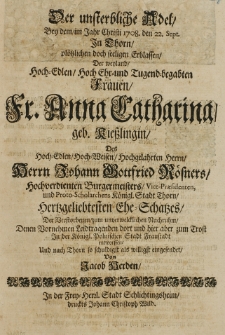 Der unsterbliche Adel/
Bey dem/im Jahr Christi 1708. den 22. Sept.
In Thorn/
plötzlichen doch seeligen Erblassen/
Der weyland/
Hoch-Edlen/ Hoch Ehr-und Tugend-begabten
Frauen/
Fr. Anna Catharina/
geb. Kießlingin/
Des
Hoch-Edlen/Hoch-Weisen/ Hochgelahrten Herrn/
Herrn Johann Gottfried Rösners/
Hochverdienten Bürgermeisters/ Vice-Præsidenten,
und Proto-Scholarchens Königl. Stadt Thorn/
Hertzgeliebtesten Ehe-Schatzes/
Der Verstorbenen zum
Denen Vornehmen Leidtragenden dort und hier aber zum Trost
In der Königl. Polnischen Stadt Fraustadt
entworffen/
Und nach Thorn so schuldigst als willigst eingesendet/
Von
Jacob Herden/
In der Frey-Herrl. Stadt Schlichtingsheim/
druckts Johann Christoph Wild.